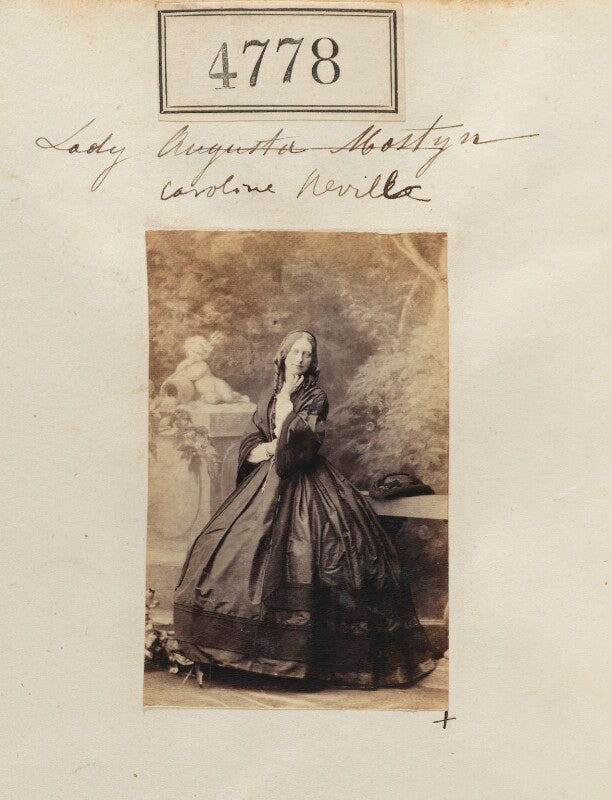 4778
Lady Augusta Mostyn
Caroline Neville
+